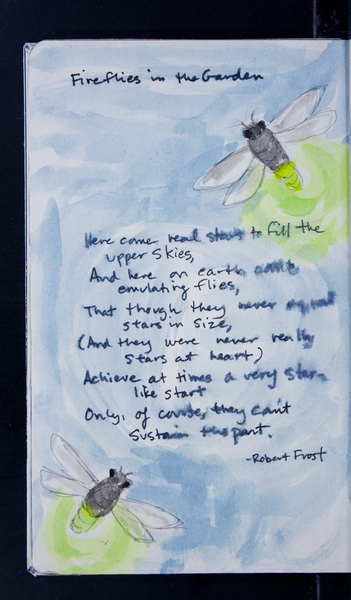 Fireflies in the Garden
Here come real stars to fill the
upper skies,
And here on earth come
emulating flies,
That though they never equal
stars in size,
(And they were never really
stars at heart)
Achieve at times a very star-
like start
Only, of course, they can't
sustain the part.
-Robert Frost